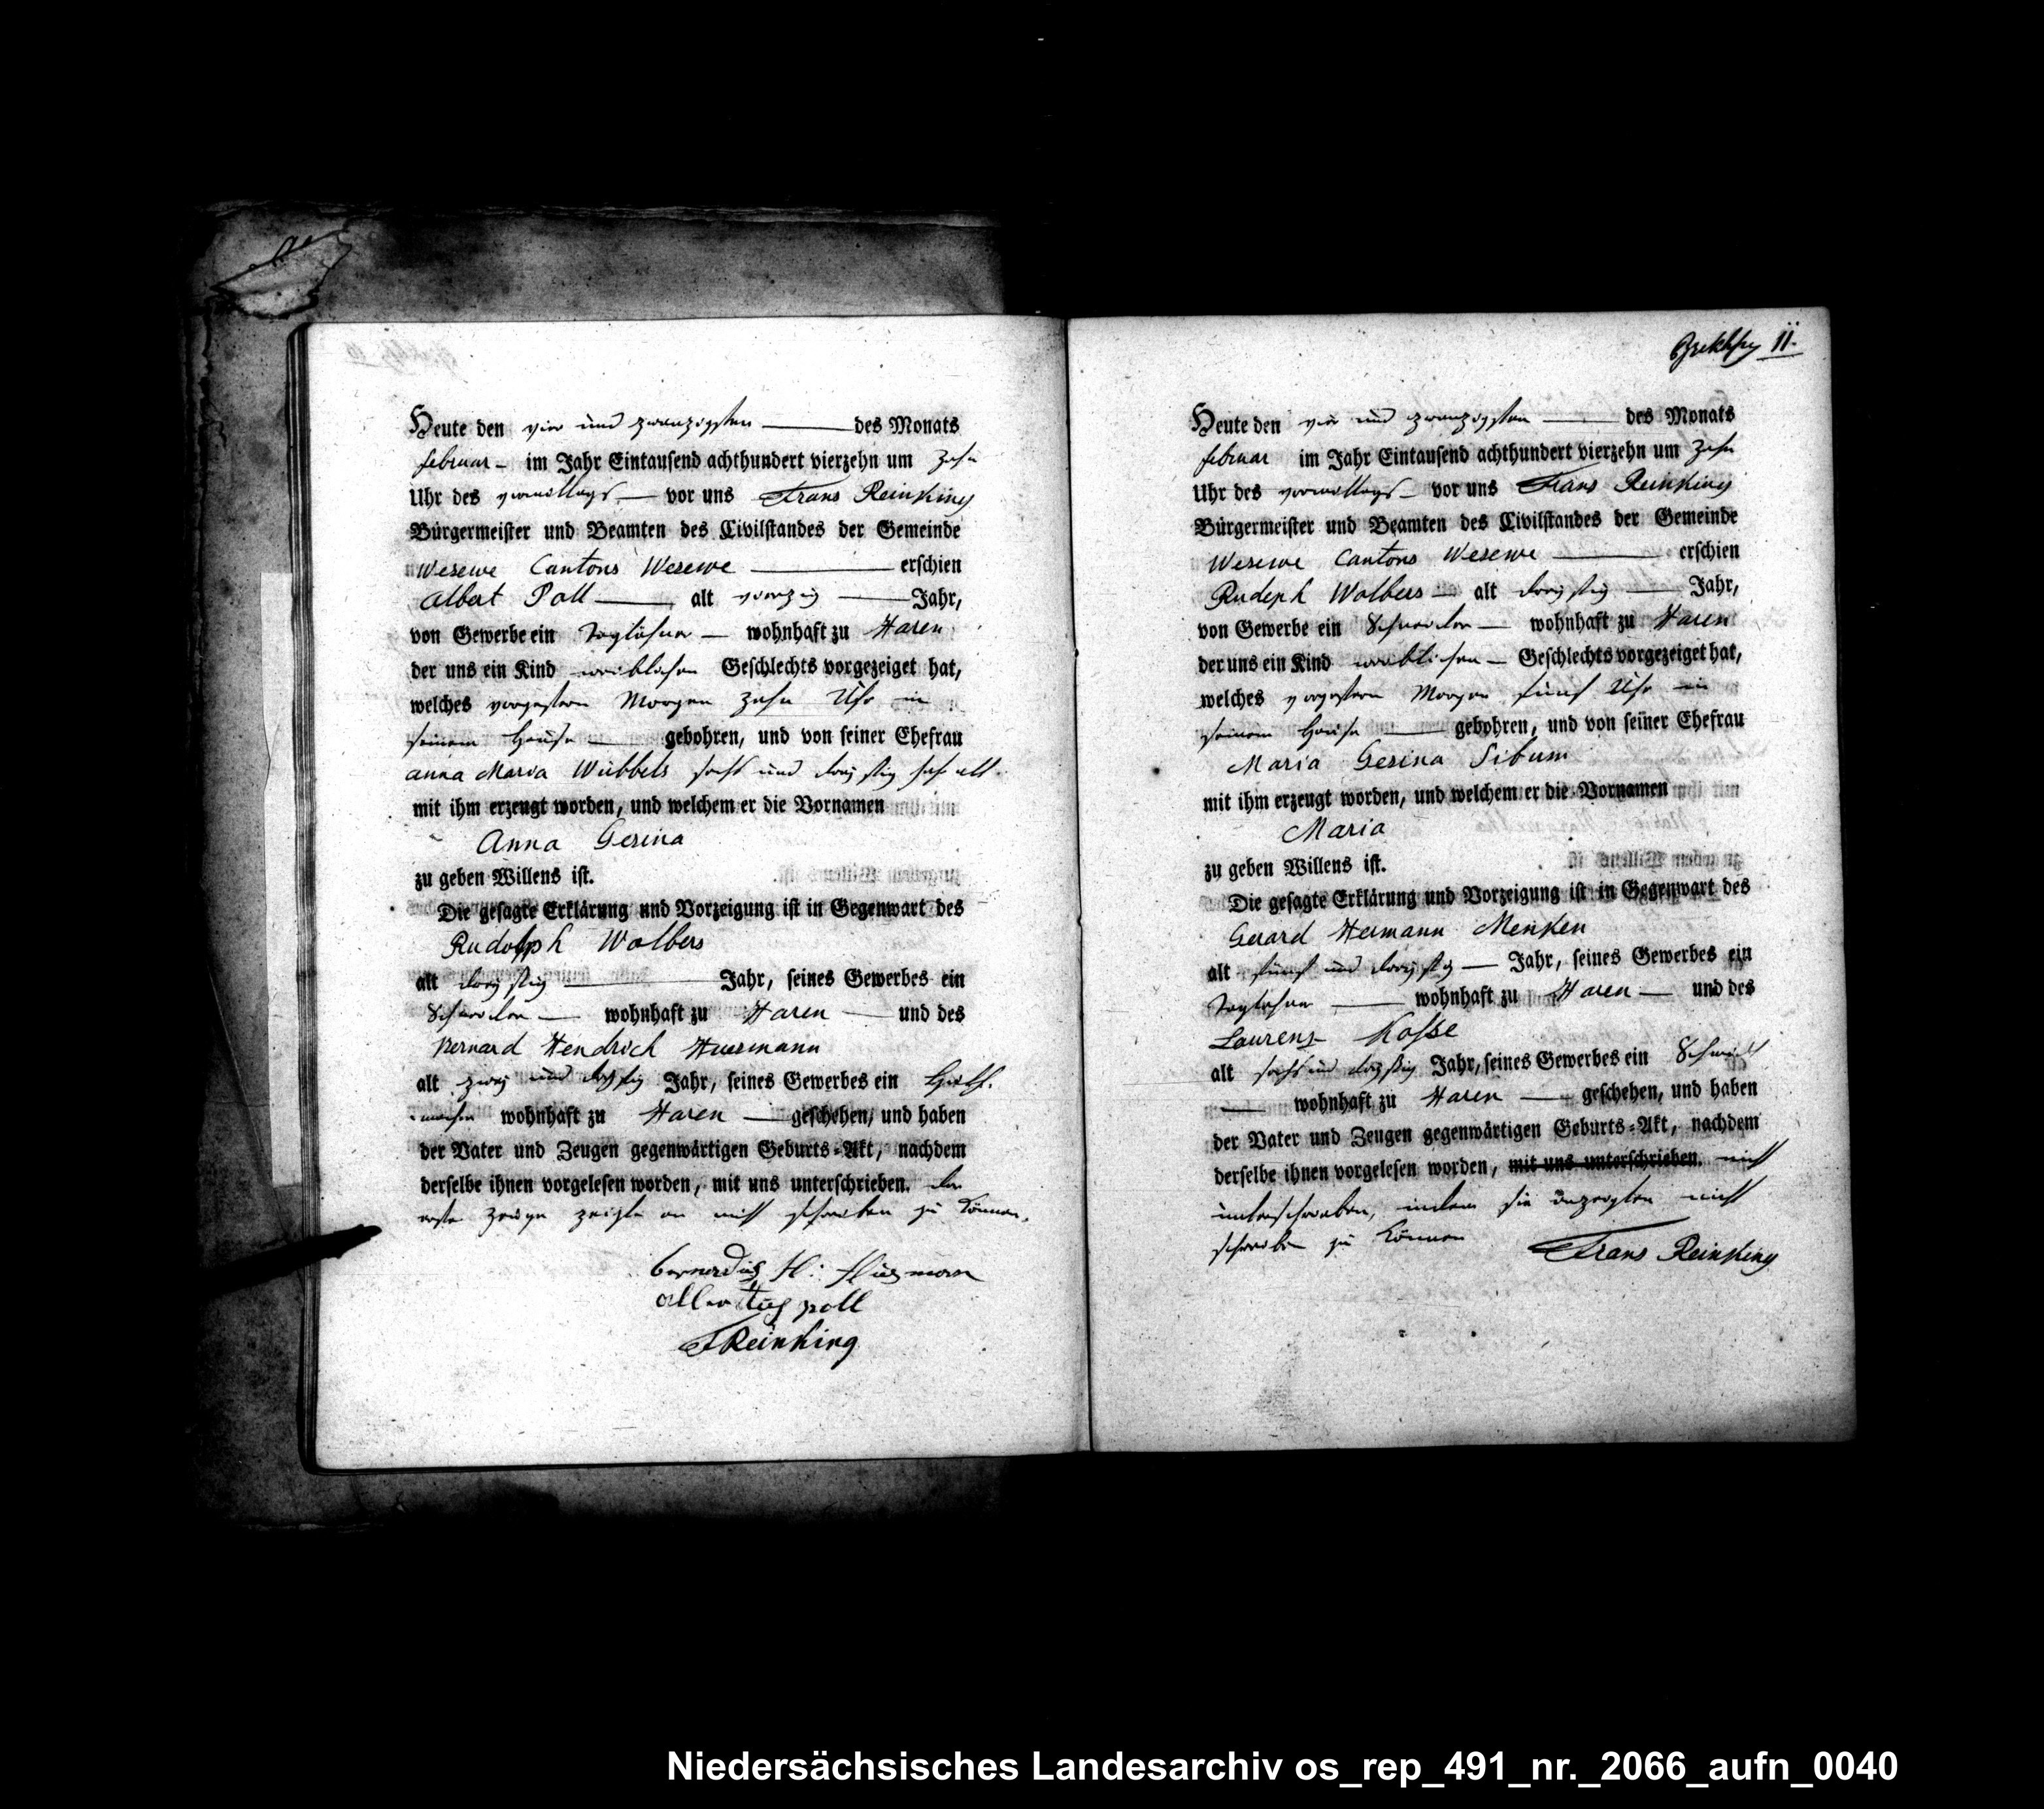 Heute den vier und zwanzigsten des Monats
februar im Jahr Eintausend achthundert vierzehn um zehn
Uhr des vormittags vor uns Frans Reinking
Bürgermeister und Beamten des Civilstandes der Gemeinde
Wesewe Cantons Wesewe erschien
Albert Poll alt vierzig Jahr,
von Gewerbe ein Taglöhner wohnhaft zu Haren
der uns ein Kind weiblichen Geschlechts vorgezeiget hat,
welches vorgestern Morgen zehn Uhr in
seinem Hause gebohren, und von seiner Ehefrau
anna Maria Wübbels sechs und dreysig Jahr alt
mit ihm erzeugt worden, und welchem er die Vornamen
Anna Gesina
zu geben Willens ist.
Die gesagte Erklärung und Vorzeigung ist in Gegenwart des
Rudolph Wolbers
alt dreysig Jahr, seines Gewerbes ein
Schneider wohnhaft zu Haren und des
Bernard Hendrich Huesmann
alt zwey und dreysig Jahr, seines Gewerbes ein
wohnhaft zu Haren geschehen, und haben
der Vater und Zeugen gegenwärtigen Geburts-Akt, nachdem
derselbe ihnen vorgelesen worden, mit uns unterschrieben. der
erste Zeuge zeigte an nicht schreiben zu können.
bernardus H:
poll
FReinking
11.
Heute den vier und zwanzigsten des Monats
februar im Jahr Eintausend achthundert vierzehn um zehn
Uhr des vormittags vor uns Frans Reinking
Bürgermeister und Beamten des Civilstandes der Gemeinde
Wesewe Cantons Wesewe erschien
Rudoph Wolbers alt dreysig Jahr,
von Gewerbe ein Schneider wohnhaft zu Haren
der uns ein Kind weiblichen Geschlechts vorgezeiget hat,
welches vorgestern Morgen fünf Uhr in
seinem Hause gebohren, und von seiner Ehefrau
Maria Gesina Sibum
mit ihm erzeugt worden, und welchem er die Vornamen
Maria
zu geben Willens ist.
Die gesagte Erklärung und Vorzeigung ist in Gegenwart des
Gerard Hermann Menken
alt fünf und dreysig Jahr, seines Gewerbes ein
Taglöhner wohnhaft zu Haren und des
Laurens Kosse
alt sechs und dreysig Jahr, seines Gewerbes ein Schmidt
wohnhaft zu Haren geschehen, und haben
der Vater und Zeugen gegenwärtigen Geburts-Akt, nachdem
derselbe ihnen vorgelesen worden, mit uns unterschrieben. nicht
unterschrieben, indem sie anzeigten nicht
schreiben zu können
Frans Reinking
Niedersächsisches Landesarchiv os_rep_491_nr._2066_aufn_0040